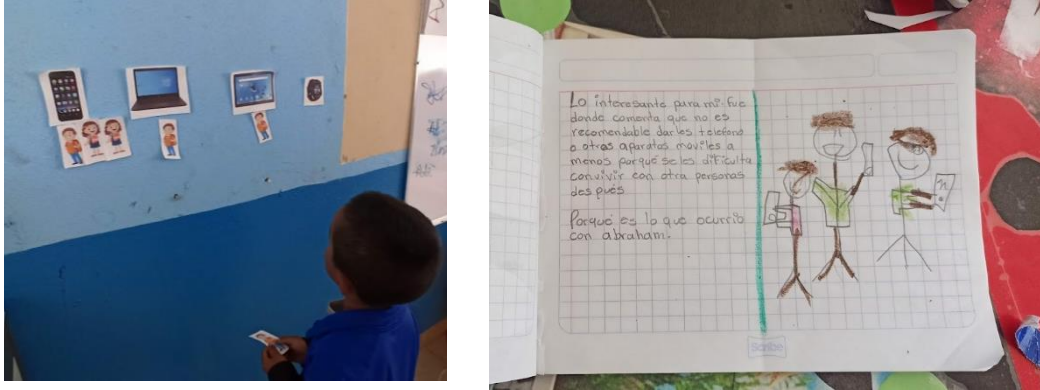 Lo interesante para mi fue
donde comenta que no es
recomendable darles telefono
o otros aparatos moviles a
menos porque seles dificulta
convivir con otra personas
despues
Porque es lo que ocurrio
con abraham.
Scribe